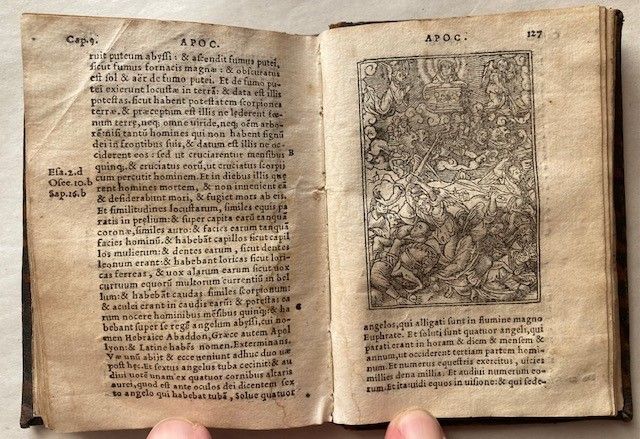 Cap.9. APOC.
ruit puteum abyssi: & ascendit fumus putei,
sicut fumus fornacis magnæ: & obscuratus
est sol & aër de fumo putei. Et de fumo pu
tei exierunt locustæ in terrã: & data est illis
potestas, sicut habent potestatem scorpiones
terræ. & præceptum est illis ne læderent fœ-
num terræ, neq; omne uiride, neq; oẽm arbo-
rẽ: nisi tantũ homines qui non habent signũ
dei in frontibus suis, & datum est illis ne oc-
ciderent eos: sed ut cruciarentur mensibus
B
quinq;. & cruciatus eorũ, ut cruciatus scorpij
Esa.2.d
cum percutit hominem. Et in diebus illis quæ
Osee.10.b
rent homines mortem, & non inuenient eã
Sap.16.b
& desiderabunt mori, & fugiet mors ab eis.
Et similitudines locustarum, similes equis pa
ratis in prelium: & super capita earũ tanquã
coronæ, similes auro: & facies earum tanquã
facies hominũ. & habebãt capillos sicut capil
los mulierum: & dentes earum, sicut dentes
leonum erant: & habebant loricas sicut lori-
cas ferreas, & uox alarum earum sicut uox
curruum equorũ multorum currentiũ in bel
lum: & habebant caudas similes scorpionum:
& aculei erant in caudis earũ: & potestas ea
rum nocere hominibus mẽsibus quinq;: & ha
C
bebant super se regẽ angelum abyssi, cui no-
men Hebraice Abaddon, Græce autem Apol
lyon: & Latine habẽs nomen, Exterminans.
Væ unũ abijt & ecce ueniunt adhuc duo uæ
post hęc. Et sextus angelus tuba cecinit: & au
diui uocẽ unam ex quatuor cornibus altaris
aurei, quod est ante oculos dei dicentem sex
to angelo qui habebat tubã, Solue quatuor
APOC. 127
angelos, qui alligati sunt in flumine magno
Euphrate. Et soluti sunt quatuor angeli, qui
parati erant in horam & diem & mensem &
annum, ut occiderent tertiam partem homi-
num. Et numerus equestris exercitus, uicies
millies dena millia. Et audiui numerum eo-
rum. Et ita uidi equos in uisione: & qui sede-